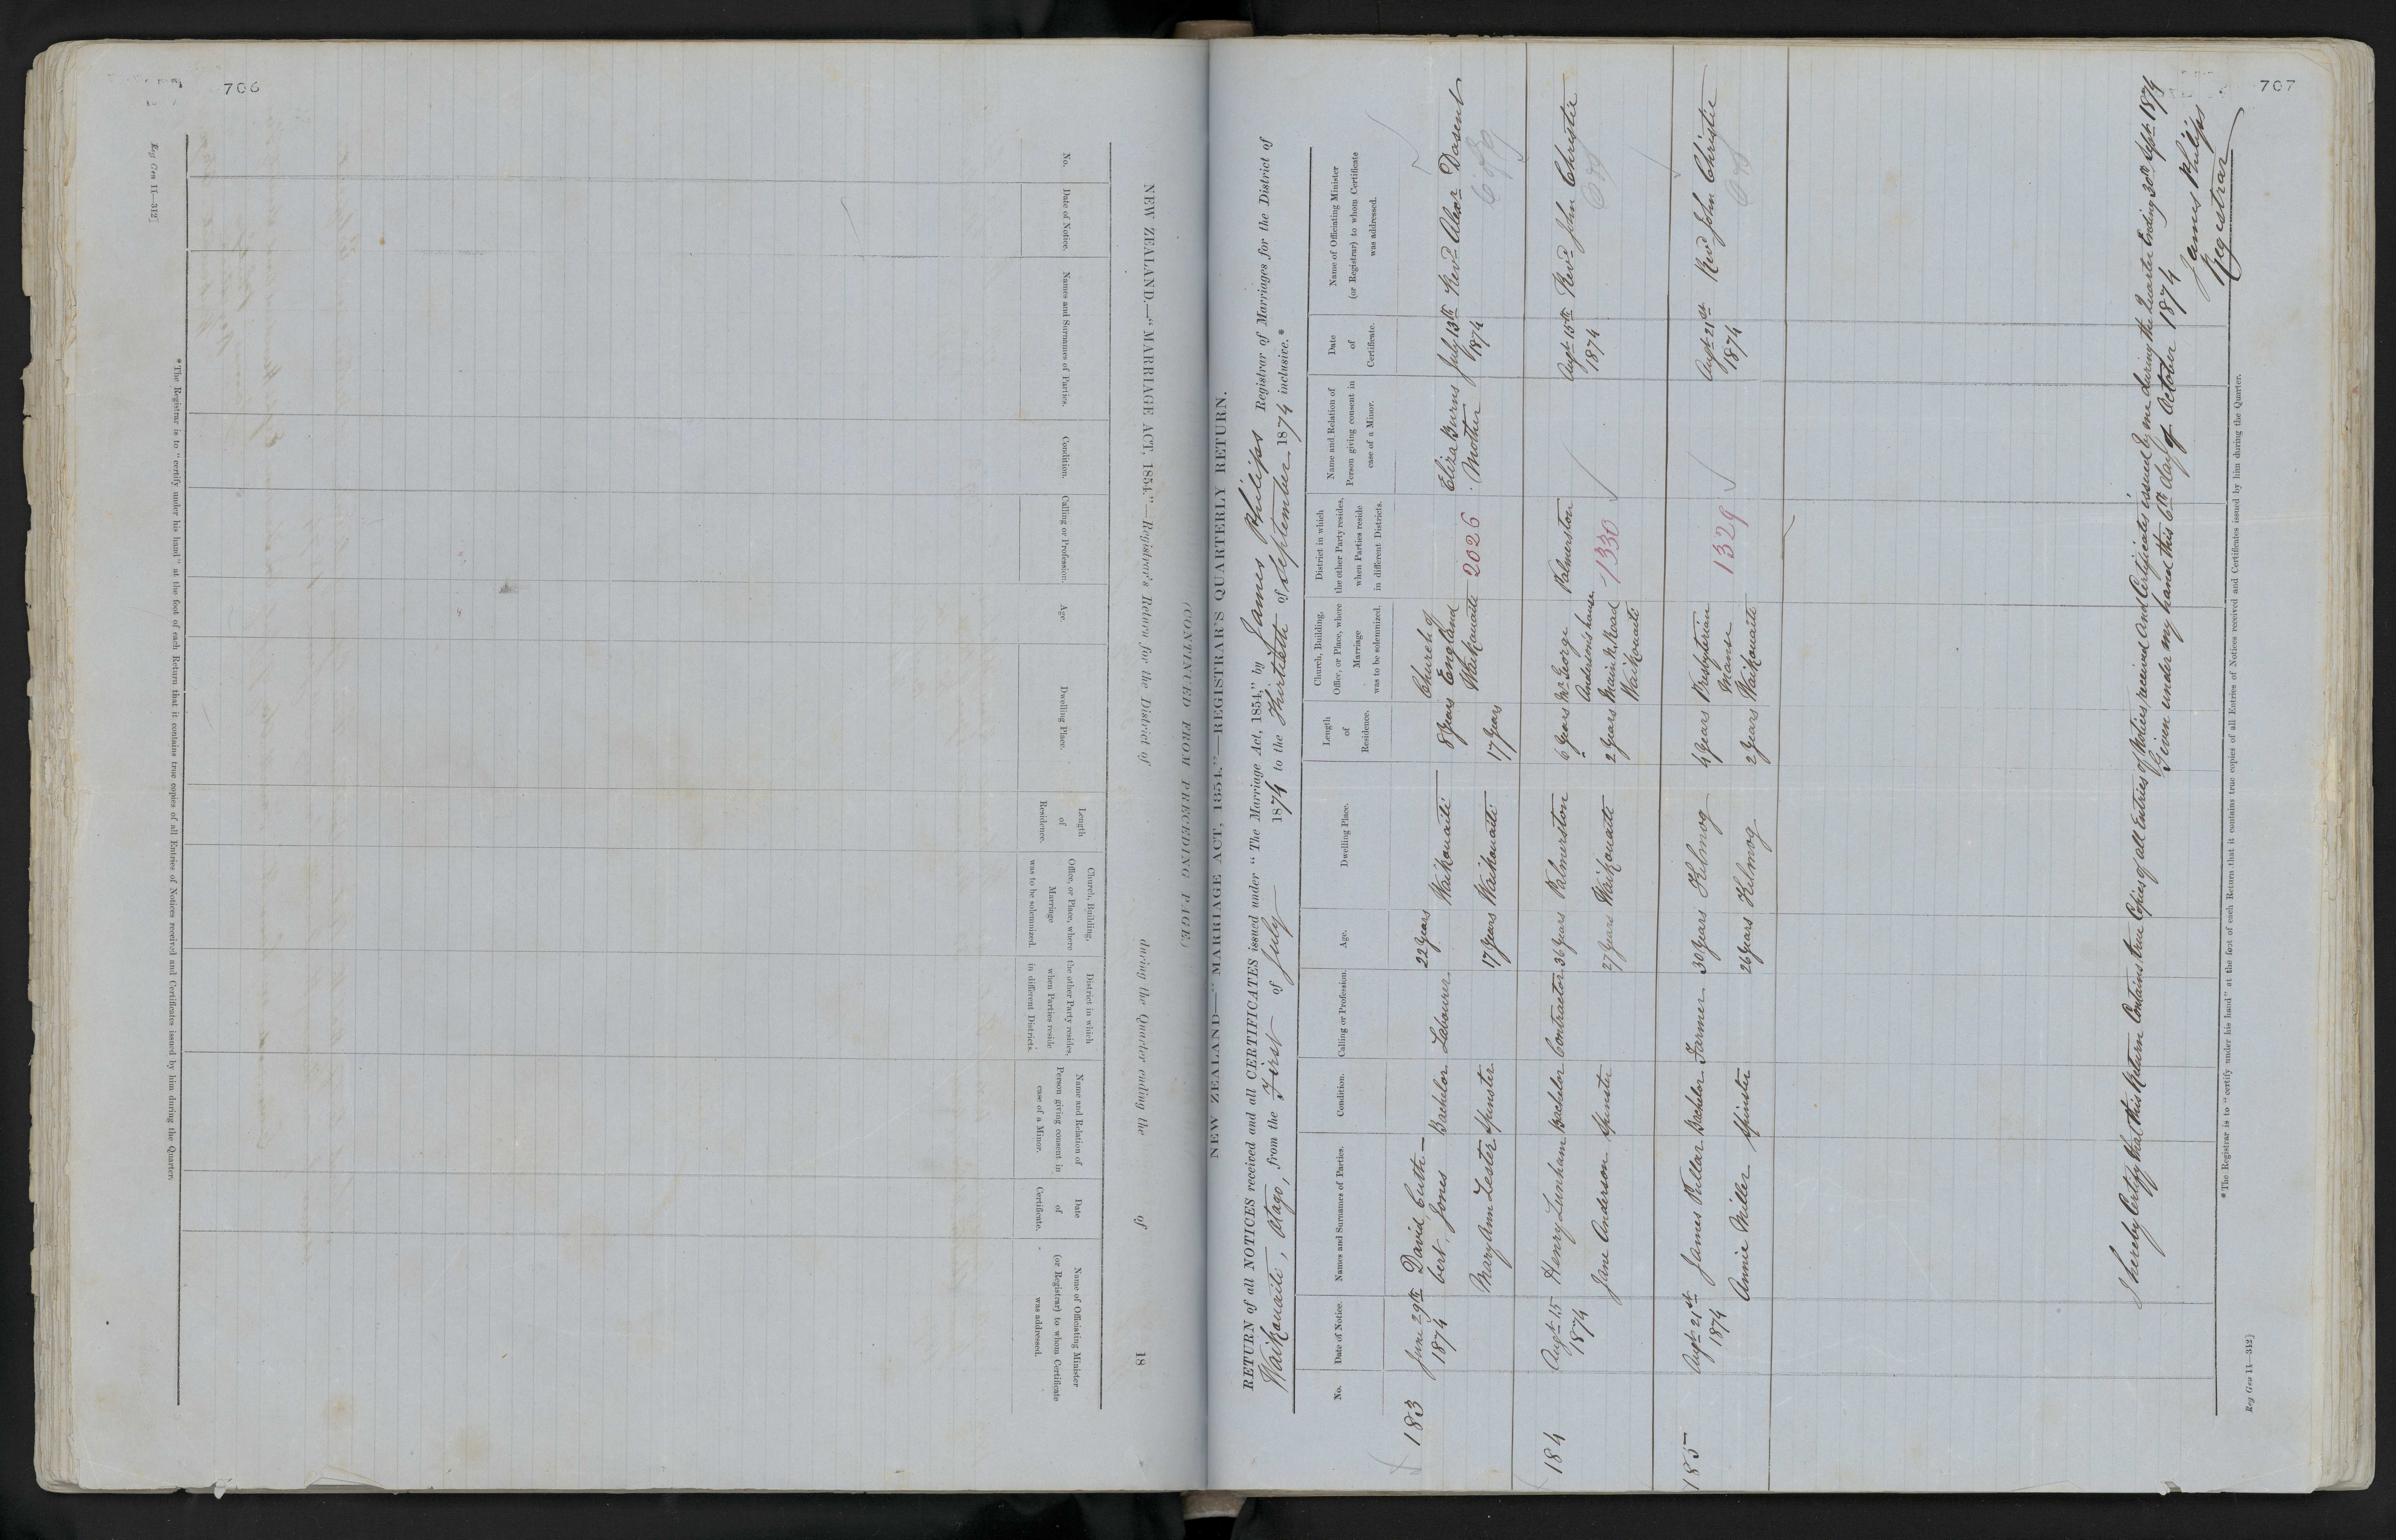 706
Reg Gen 11—312]
NEW ZEALAND.—"MARRIAGE ACT, 1854."—Registrar's Return for the District of during the Quarter ending the of 18
(CONTINUED FROM PRECEDING PAGE)
No.
Date of Notice.
Names and Surnames of Parties.
Condition.
Calling or Profession.
Age.
Dwelling Place.
Length
of
Residence.
Church, Building,
Office, or Place, where
Marriage
was to be solemnized.
District in which
the other Party resides,
when Parties reside
in different Districts.
Name and Relation of
Person giving consent in
case of a Minor.
Date
of
Certificate.
Name of Officiating Minister
(or Registrar) to whom Certificate
was addressed.
*The Registrar is to "certify under his hand" at the foot of each Return that it contains true copies of all Entries of Notices received and Certificates issued by him during the Quarter.
707
NEW ZEALAND—"MARRIAGE ACT, 1854."—REGISTRAR'S QUARTERLY RETURN.
RETURN of all NOTICES received and all CERTIFICATES issued under "The Marriage Act, 1854," by James Philips Registrar of Marriages for the District of
Waikouaiti, Otago, from the First of July 1874 to the Thirtieth of September 1874 inclusive.*
No.
Date of Notice.
Names and Surnames of Parties.
Condition.
Calling or Profession.
Age.
Dwelling Place.
Length
of
Residence.
Church, Building,
Office, or Place, where
Marriage
was to be solemnized.
District in which
the other Party resides,
when Parties reside
in different Districts.
Name and Relation of
Person giving consent in
case of a Minor.
Date
of
Certificate.
Name of Officiating Minister
(or Registrar) to whom Certificate
was addressed.
183
June 29th
1874
David Cuth-
bert Jones
Bachelor
Labourer
22 Years
Waikouaiti
8 Years
Mary Ann Lester
Spinster
17 Years
Waikouaiti
17 Years
Church of
England
Waikouaiti
2026
Eliza Burns
Mother
July 13th
1874
Revd Alexr Dasent
184
Augt 15
1874
Henry Lunham
Bachelor
Contractor
36 Years
Palmerston
6 Years
Jane Anderson
Spinster
27 Years
Waikouaiti
2 Years
Mr George
Anderson's house
Main N. Road
Waikouaiti
Palmerston
1330
Augt 15th
1874
Revd John Christie
185
Augt 21st
1874
James Pullar
Bachelor
Farmer
30 Years
Kilmog
4 Years
Annie Miller
Spinster
26 Years
Kilmog
2 Years
Presbyterian
Manse
Waikouaiti
1329
Augt 21st
1874
Revd John Christie
I hereby Certify that this Return Contains true Copies of all Entries of Notices received and Certificates issued by me during the Quarter Ending 30th Sept 1874
Given under my hand this 6th day of October 1874
James Philips
Registrar
*The Registrar is to "certify under his hand" at the foot of each Return that it contains true copies of all Entries of Notices received and Certificates issued by him during the Quarter.
Reg Gen 11—312]